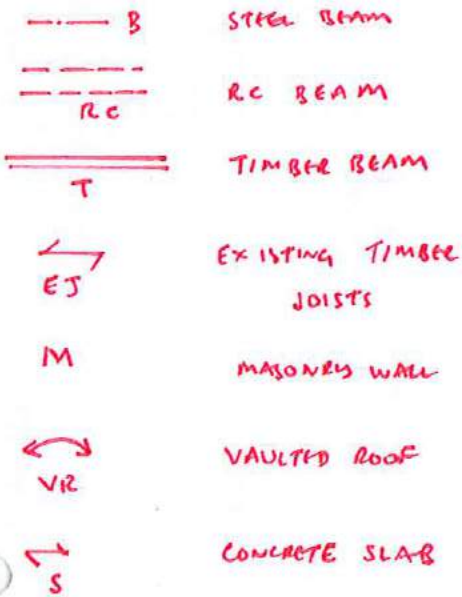 B STEEL BEAM
RC BEAM
RC
TIMBER BEAM
T
EXISTING TIMBER
EJ JOISTS
M MASONRY WALL
VAULTED ROOF
VR
CONCRETE SLAB
S